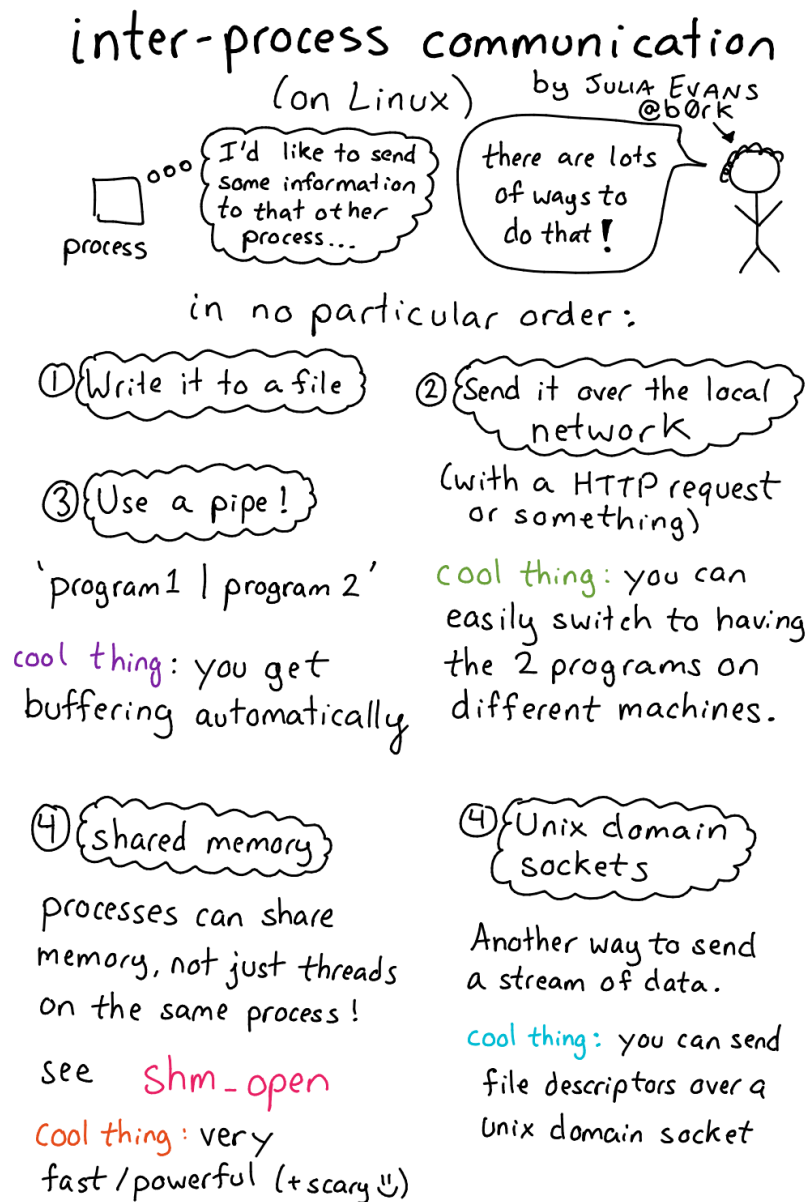 inter-process communication
(on Linux)
by JULIA EVANS
@b0rk
process
I'd like to send
some information
to that other
process...
there are lots
of ways to
do that!
in no particular order:
① Write it to a file
② Send it over the local
network
(with a HTTP request
or something)
cool thing: you can
easily switch to having
the 2 programs on
different machines.
③ Use a pipe!
'program1 | program 2'
cool thing: you get
buffering automatically
④ shared memory
processes can share
memory, not just threads
on the same process!
see shm_open
cool thing: very
fast/powerful (+scary ü)
④ Unix domain
sockets
Another way to send
a stream of data.
cool thing: you can send
file descriptors over a
unix domain socket